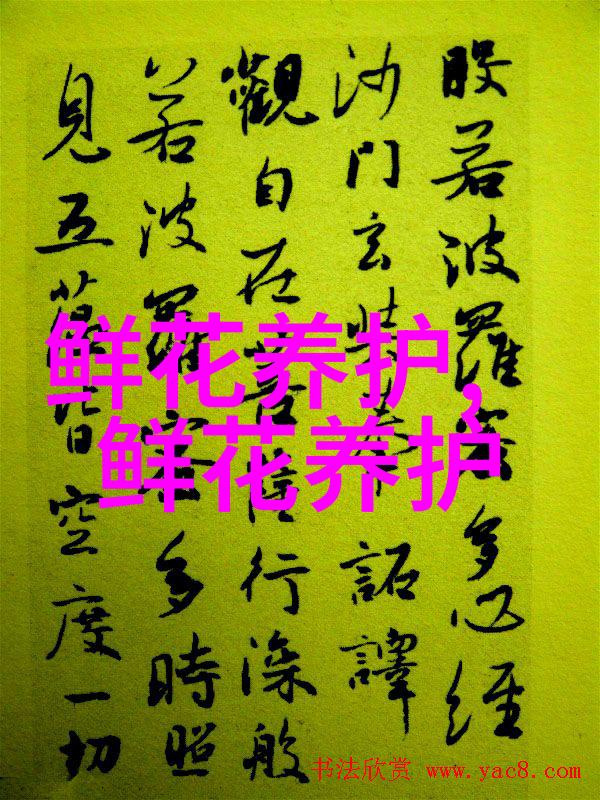 般若波羅蜜多心經
沙門玄奘奉 詔譯
觀自在菩薩行深般
若波羅蜜多時照
見五蘊皆空度一切
鲜花养护,
鲜花养护
书法欣赏 www.yac8.com